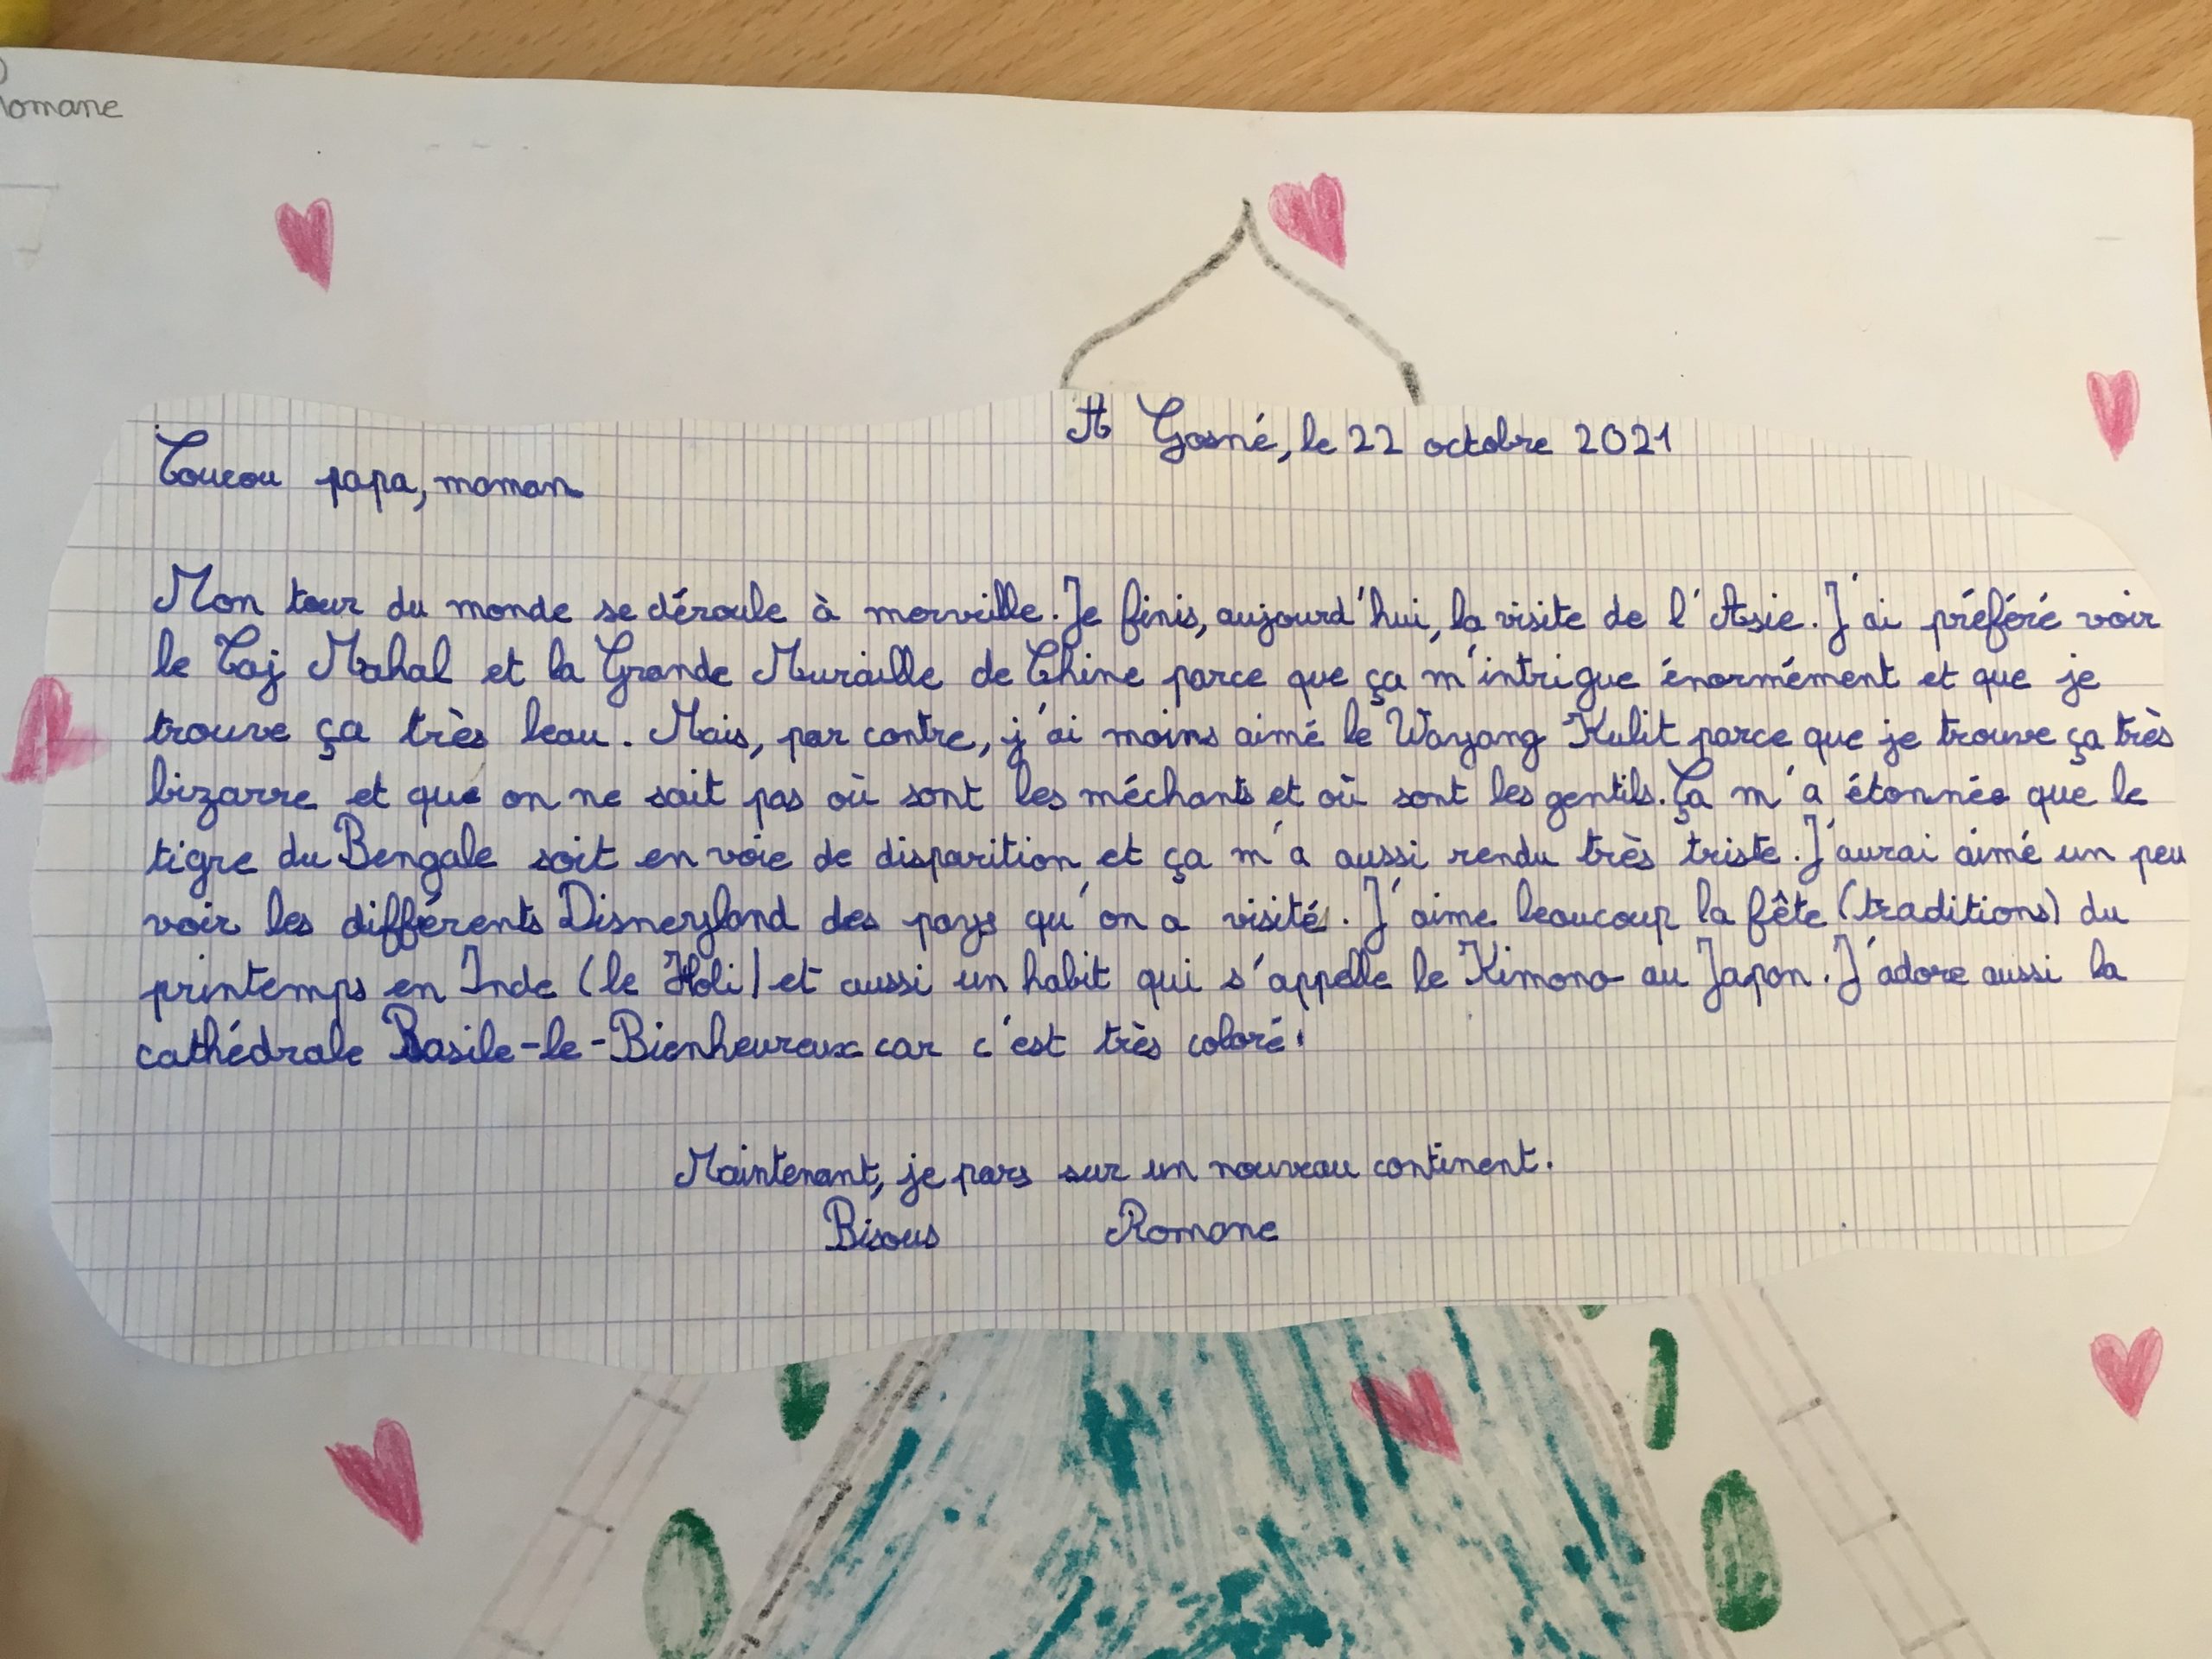 Romane
A Gosné, le 22 octobre 2021
Coucou papa, maman
Mon tour du monde se déroule à merveille. Je finis, aujourd'hui, la visite de l'Asie. J'ai préféré voir
le Taj Mahal et la Grande Muraille de Chine parce que ça m'intrigue énormément et que je
trouve ça très beau. Mais, par contre, j'ai moins aimé le Wayang Kulit parce que je trouve ça très
bizarre et que on ne sait pas où sont les méchants et où sont les gentils. Ça m'a étonnée que le
tigre du Bengale soit en voie de disparition et ça m'a aussi rendu très triste. J'aurai aimé un peu
voir les différents Disneyland des pays qu'on a visité. J'aime beaucoup la fête (traditions) du
printemps en Inde (le Holi) et aussi un habit qui s'appelle le Kimono au Japon. J'adore aussi la
cathédrale Basile-le-Bienheureux car c'est très coloré.
Maintenant, je pars sur un nouveau continent.
Bisous Romane